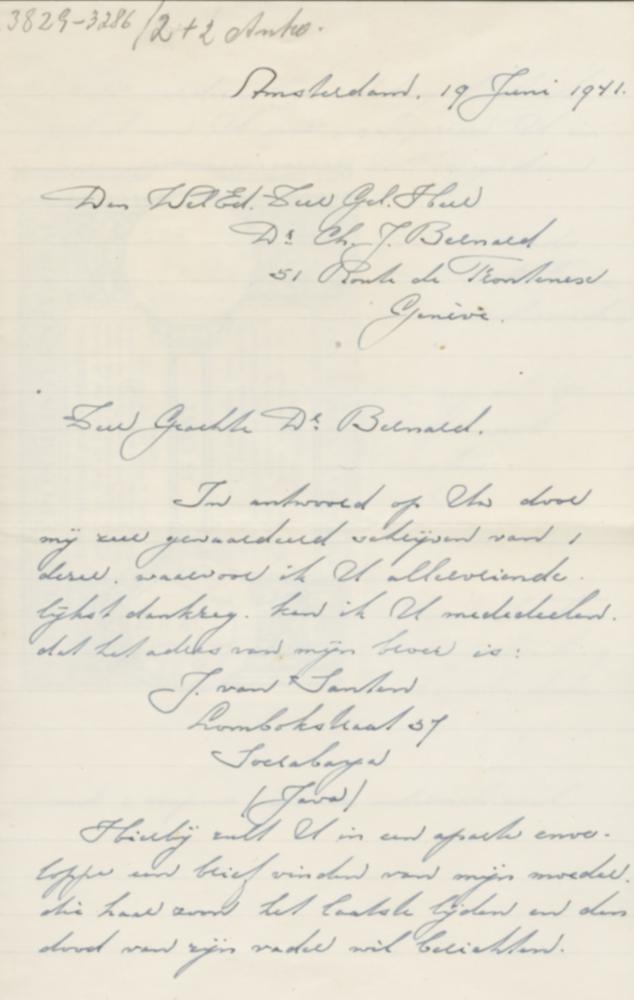 3829-3286/2+2 Antw.
Amsterdam, 19 Juni 1941.
Den WelEd. Zeer Gel. Heer
Dr. Ch. J. Bernard
51 Route de Frontenex
Genève.
Zeer Geachte Dr. Bernard.
In antwoord op Uw door
mij zeer gewaardeerd schrijven van 1
dezer, waarvoor ik U allervriende-
lijkst dankzeg, kan ik U mededeelen,
dat het adres van mijn broer is:
J. van Santen
Lombokstraat 37
Soerabaya
(Java)
Hierbij zult U in een aparte enve-
loppe een brief vinden van mijn moeder,
die haar zoon het laatste lijden en den
dood van zijn vader wil berichten.